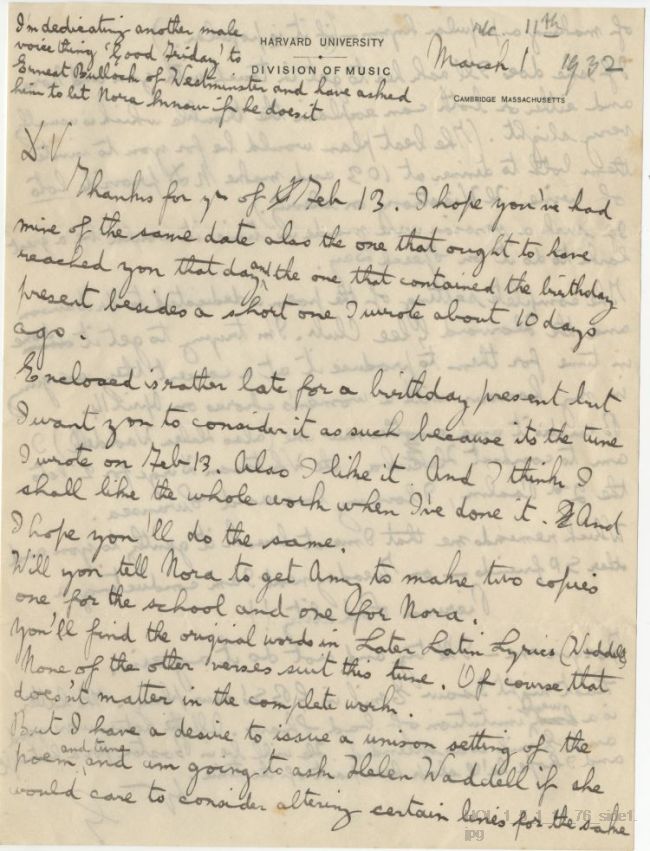 I'm dedicating another male
voice thing 'Good Friday' to
Ernest Bullock of Westminster and have asked
him to let Nora know if he does it
HARVARD UNIVERSITY
DIVISION OF MUSIC
CAMBRIDGE MASSACHUSETTS
rec. 11th
March 1 1932
D.V
Thanks for yrs of Feb 13. I hope you've had
mine of the same date alas the one that ought to have
reached you that day and the one that contained the birthday
present besides a short one I wrote about 10 days
ago.
Enclosed is rather late for a birthday present but
I want you to consider it as such because its the tune
I wrote on Feb 13. Also I like it. And I think I
shall like the whole work when I've done it. And
I hope you'll do the same.
Will you tell Nora to get Amy to make two copies
one for the school and one for Nora.
You'll find the original words in Later Latin Lyrics (Waddell)
None of the other verses suit this tune. Of course that
doesn't matter in the complete work.
But I have a desire to issue a unison setting of the
poem and tune and am going to ask Helen Waddell if she
would care to consider altering certain lines for the sake
HOL_1_5_1_1_76_side1.
jpg